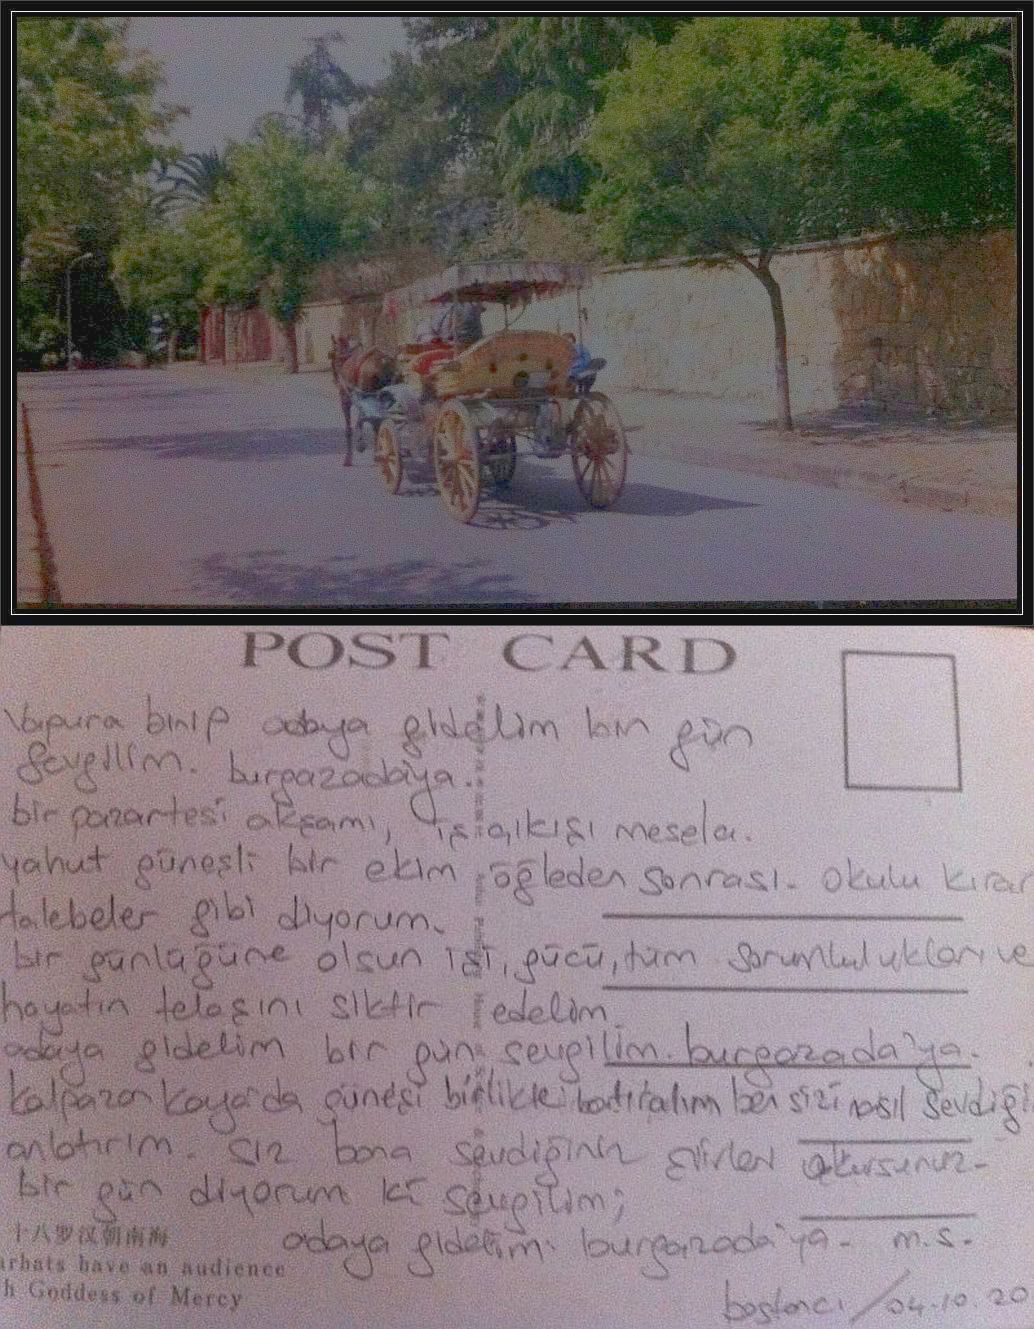 POST CARD
Vapura binip adaya gidelim bir gün
sevgilim. burgazada'ya.
bir pazartesi akşamı, iş çıkışı mesela.
yahut güneşli bir ekim öğleden sonrası. okulu kıran
talebeler gibi diyorum.
bir günlüğüne olsun işi, gücü, tüm sorumlulukları ve
hayatın telaşını siktir edelim.
adaya gidelim bir gün sevgilim. burgazada'ya.
kalpazankaya'da güneşi birlikte batıralım ben sizi nasıl sevdiği
anlatırım. siz bana sevdiğiniz şiirleri okursunuz.
bir gün diyorum ki sevgilim;
adaya gidelim. burgazada'ya. m.s.
十八罗汉朝南海
arhats have an audience
h Goddess of Mercy
bostancı / 04.10.20